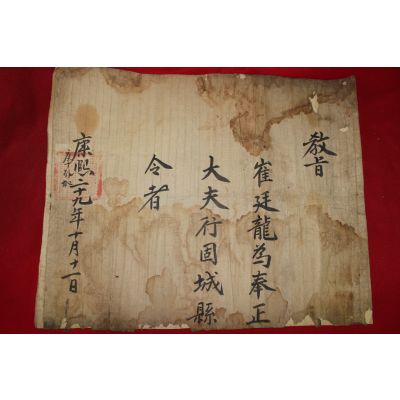 教旨
崔廷龍為奉正
大夫行固城縣
令者
康熙二十九年十月十一日